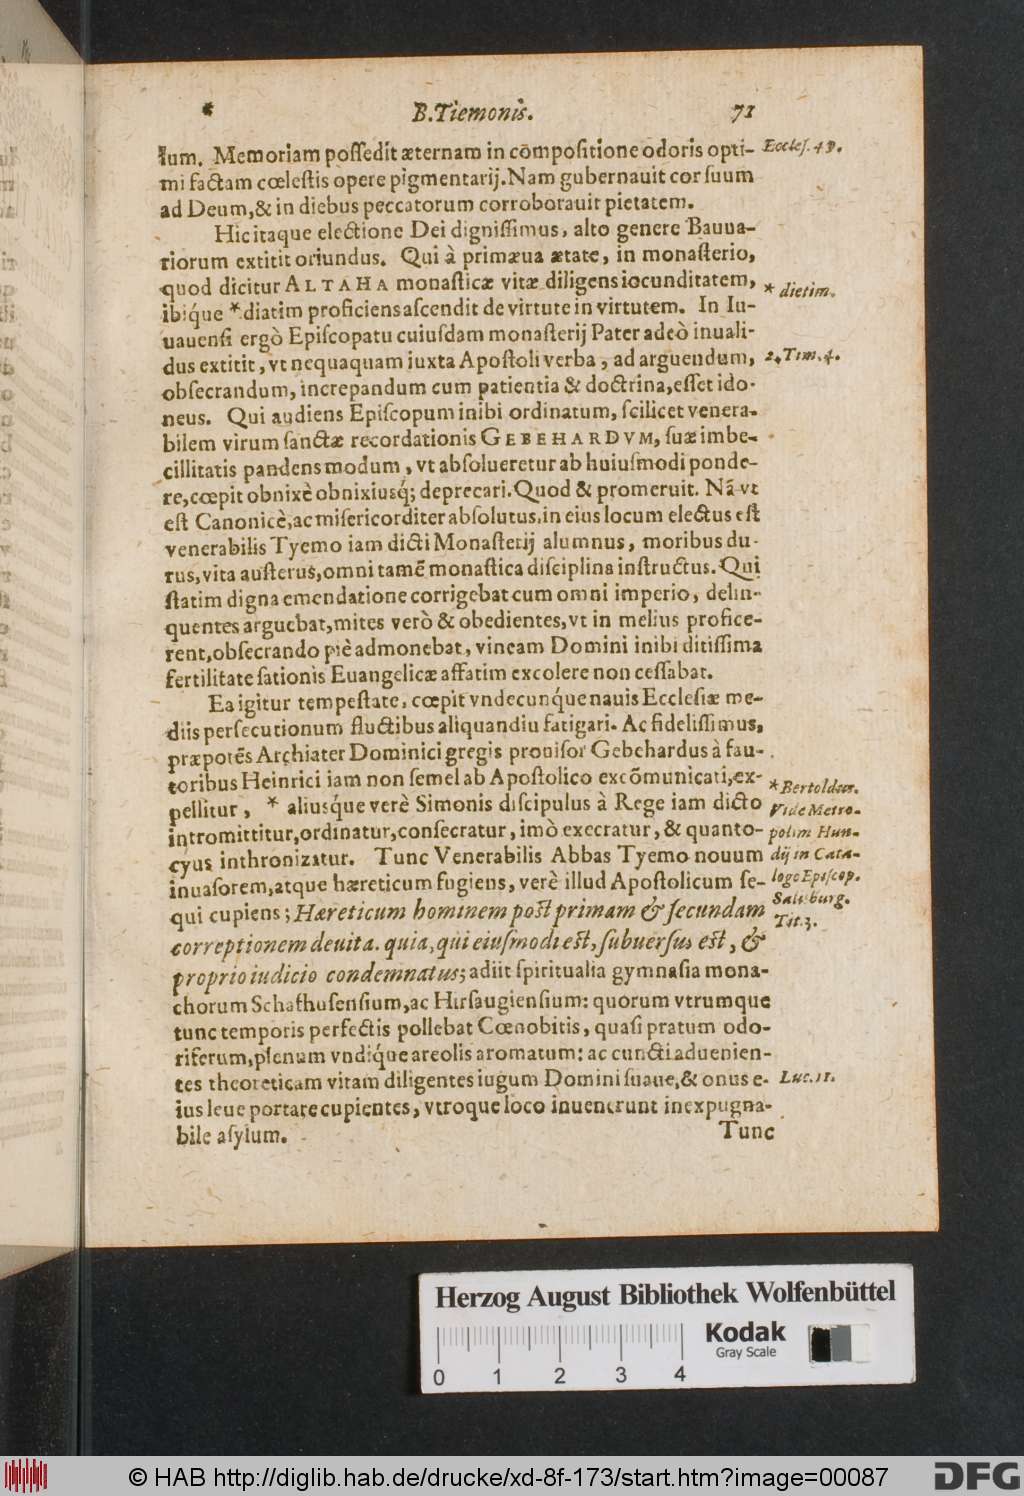 B. Tiemonis. 71
lum. Memoriam possedit æternam in cōmpositione odoris opti- Eccles. 49.
mi factam cœlestis opere pigmentarij. Nam gubernauit cor suum
ad Deum, & in diebus peccatorum corroborauit pietatem.
Hic itaque electione Dei dignissimus, alto genere Bauua-
riorum extitit oriundus. Qui à primæua ætate, in monasterio,
quod dicitur ALTAHA monasticæ vitæ diligens iocunditatem, * dietim.
ibiq́ue * diatim proficiens ascendit de virtute in virtutem. In Iu-
uauensi ergò Episcopatu cuiusdam monasterij Pater adeò inuali-
dus extitit, vt nequaquam iuxta Apostoli verba, ad arguendum, 2. Tim. 4.
obsecrandum, increpandum cum patientia & doctrina, esset ido-
neus. Qui audiens Episcopum inibi ordinatum, scilicet venera-
bilem virum sanctæ recordationis GEBEHARDVM, suæ imbe-
cillitatis pandens modum, vt absolueretur ab huiusmodi ponde-
re, cœpit obnixè obnixiusq́; deprecari. Quod & promeruit. Nā vt
est Canonicè, ac misericorditer absolutus, in eius locum electus est
venerabilis Tyemo iam dicti Monasterij alumnus, moribus du-
rus, vita austerus, omni tamē monastica disciplina instructus. Qui
statim digna emendatione corrigebat cum omni imperio, delin-
quentes arguebat, mites verò & obedientes, vt in melius profice-
rent, obsecrando piè admonebat, vineam Domini inibi ditissima
fertilitate sationis Euangelicæ affatim excolere non cessabat.
Ea igitur tempestate, cœpit vndecunq́ue nauis Ecclesiæ me-
diis persecutionum fluctibus aliquandiu fatigari. Ac fidelissimus,
præpotēs Archiater Dominici gregis prouisor Gebehardus à fau-
toribus Heinrici iam non semel ab Apostolico excōmunicati, ex- * Bertoldus.
pellitur, * aliusq́ue verè Simonis discipulus à Rege iam dicto Vide Metro-
intromittitur, ordinatur, consecratur, imò execratur, & quanto- polim Hun-
cyus inthronizatur. Tunc Venerabilis Abbas Tyemo nouum dij in Cata-
inuasorem, atque hæreticum fugiens, verè illud Apostolicum se- logo Episcop.
qui cupiens; Hæreticum hominem post primam & secundam Salisburg.
correptionem deuita. quia, qui eiusmodi est, subuersus est, & Tit. 3.
proprio iudicio condemnatus; adiit spiritualia gymnasia mona-
chorum Schafhusensium, ac Hirsaugiensium: quorum vtrumque
tunc temporis perfectis pollebat Cœnobitis, quasi pratum odo-
riferum, plenum vndiq́ue areolis aromatum: ac cuncti aduenien-
tes theoreticam vitam diligentes iugum Domini suaue, & onus e- Luc. 11.
ius leue portare cupientes, vtroque loco inuenerunt inexpugna-
bile asylum.
Tunc
Herzog August Bibliothek Wolfenbüttel
Kodak
Gray Scale
0 1 2 3 4
© HAB http://diglib.hab.de/drucke/xd-8f-173/start.htm?image=00087
DFG